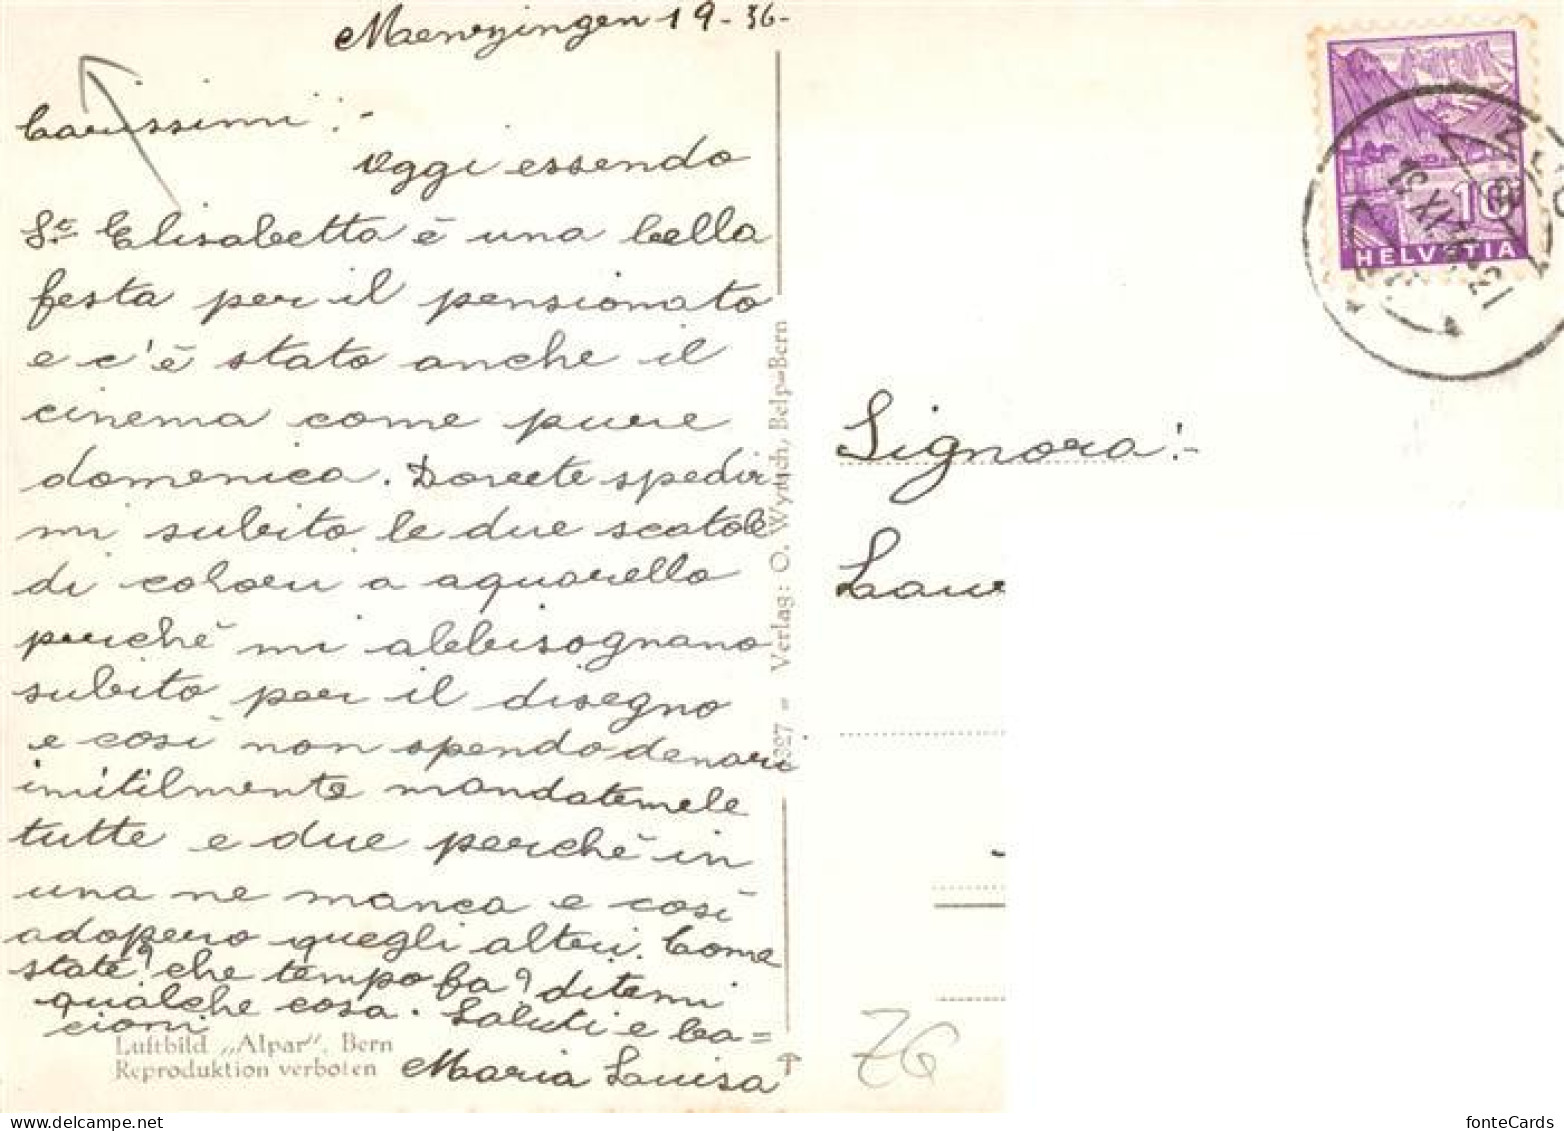 Menzingen 19-36-
Carissimi!-
Oggi essendo
S.ta Elisabetta è una bella
festa per il pensionato
e c'è stato anche il
cinema come pure
domenica. Dovete spedir
mi subito le due scatole
di colori a aquarello
perchè mi abbisognano
subito per il disegno
e così non spendo denari
inutilmente mandatemele
tutte e due perchè in
una ne manca e così
adopero quegli altri. Come
state? che tempo fa? ditemi
qualche cosa. Saluti e ba=
cioni
Maria Luisa
Luftbild „Alpar", Bern
Reproduktion verboten
327 - Verlag: O. Wyrsch, Belp-Bern
10
HELVETIA
Signora!-
Lau
ZG
fonteCards